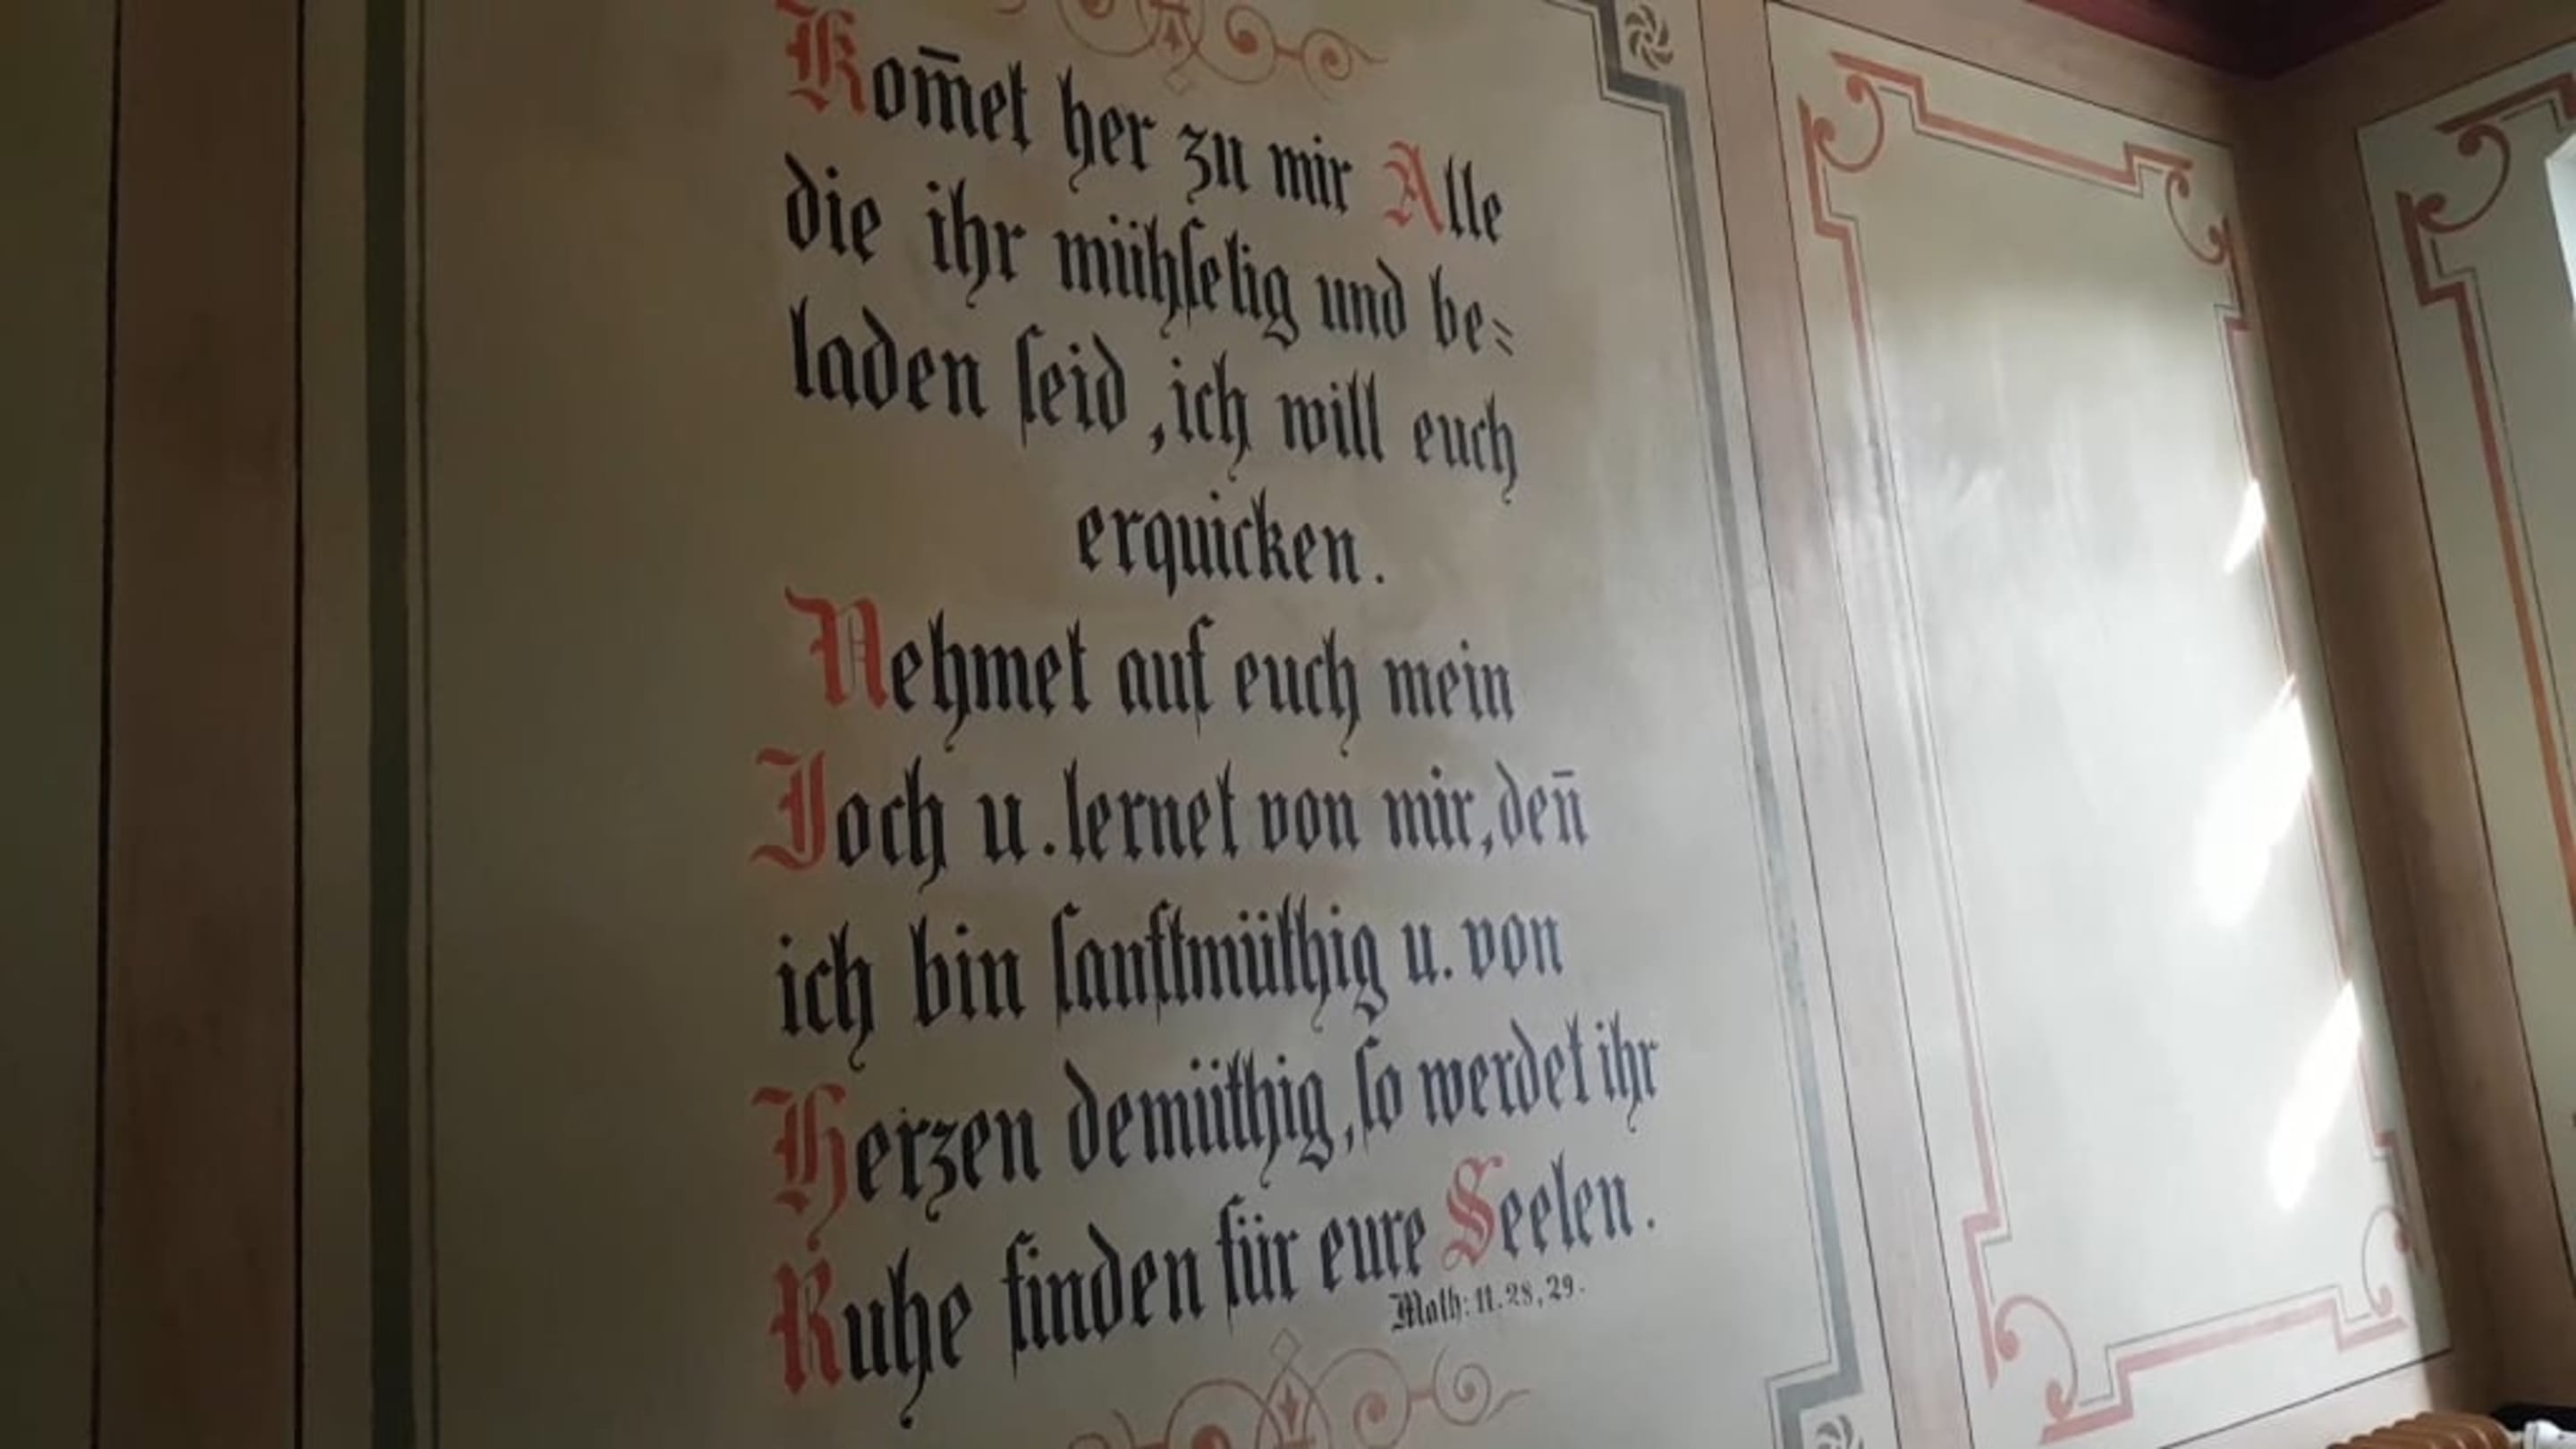 Kom̄et her zu mir Alle
die ihr mühſelig und be⸗
laden ſeid, ich will euch
erquicken.
Nehmet auf euch mein
Joch u. lernet von mir, den̄
ich bin ſanftmüthig u. von
Herzen demüthig, ſo werdet ihr
Ruhe finden für eure Seelen.
Math: 11. 28, 29.